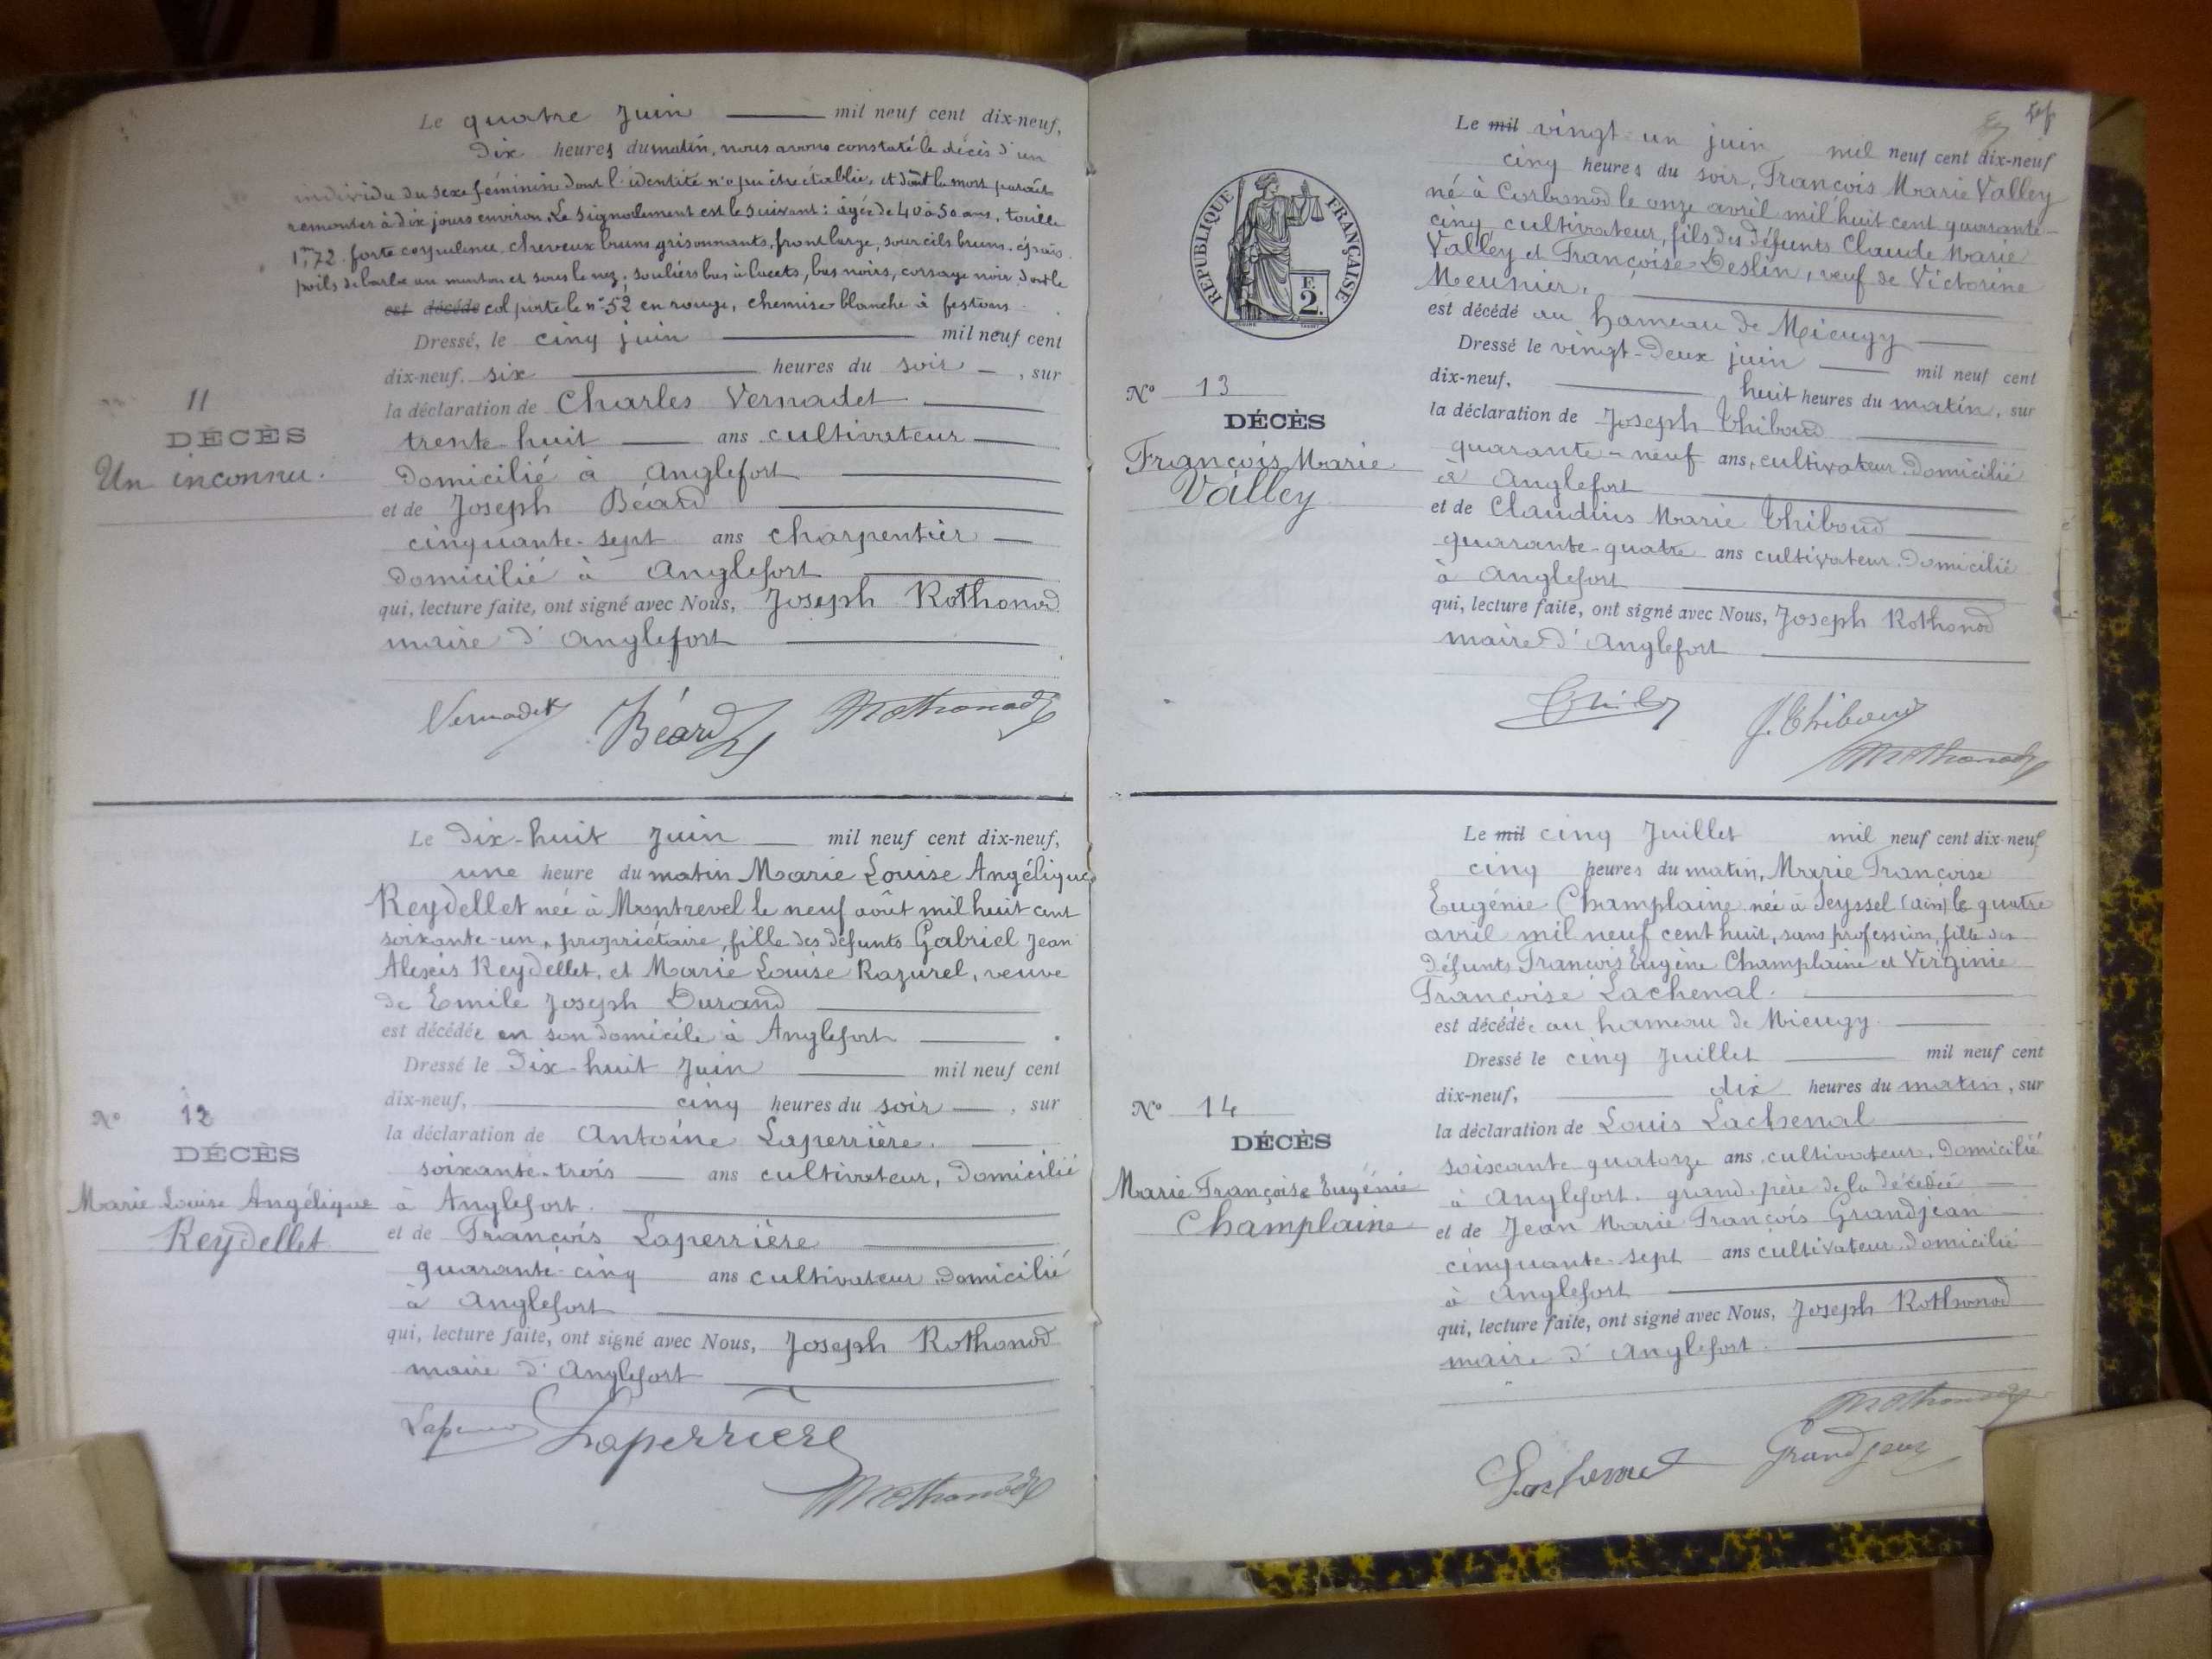 Le quatre Juin mil neuf cent dix-neuf,
Dix heures du matin, nous avons constaté le décès d'un
individu du sexe féminin dont l'identité n'a pu être établie, et dont la mort paraît
remonter à dix jours environ. Le signalement est le suivant : âgée de 40 à 50 ans, taille
1m,72. forte corpulence, cheveux bruns grisonnants, front large, sourcils bruns, épais
poils de barbe au menton et sous le nez; souliers bas à lacets, bas noirs, corsage noir dont le
est décédé col porte le n° 52 en rouge, chemise blanche à festons
Dressé, le cinq juin mil neuf cent
dix-neuf. six heures du soir, sur
la déclaration de Charles Vernadet
trente-huit ans cultivateur
domicilié à Anglefort
et de Joseph Béard
cinquante-sept ans charpentier
domicilié à Anglefort
qui, lecture faite, ont signé avec Nous, Joseph Rothonod
maire d'Anglefort
11
DÉCÈS
Un inconnu.
Vernadet Béard Rothonod
Le Dix-huit Juin mil neuf cent dix-neuf,
une heure du matin Marie Louise Angélique
Reydellet née à Montrevel le neuf août mil huit cent
soixante-un, propriétaire, fille des défunts Gabriel Jean
Alexis Reydellet, et Marie Louise Razurel, veuve
de Emile Joseph Durand
est décédée en son domicile à Anglefort
Dressé le Dix-huit Juin mil neuf cent
dix-neuf, cinq heures du soir, sur
la déclaration de Antoine Laperrière.
soixante-trois ans cultivateur, domicilié
à Anglefort.
et de François Laperrière
quarante-cinq ans cultivateur domicilié
à Anglefort
qui, lecture faite, ont signé avec Nous, Joseph Rothonod
maire d'Anglefort
N° 12
DÉCÈS
Marie Louise Angélique
Reydellet
Laperrière
Rothonod
RÉPUBLIQUE FRANÇAISE
F.
2.
Le mil vingt-un juin mil neuf cent dix-neuf
cinq heures du soir, François Marie Valley
né à Corbonod le onze avril mil huit cent quarante-
cinq, cultivateur, fils des défunts Claude Marie
Valley et Françoise Deslin, veuf de Victorine
Meunier.
est décédé au hameau de Mieugy
Dressé le vingt-deux juin mil neuf cent
dix-neuf, huit heures du matin, sur
la déclaration de Joseph Thiboud
quarante-neuf ans, cultivateur domicilié
à Anglefort
et de Claudius Marie Thiboud
quarante-quatre ans cultivateur domicilié
à Anglefort
qui, lecture faite, ont signé avec Nous, Joseph Rothonod
maire d'Anglefort
N° 13
DÉCÈS
François Marie
Valley
J. Thiboud
Rothonod
Le mil cinq Juillet mil neuf cent dix-neuf
cinq heures du matin, Marie Françoise
Eugénie Champlaine née à Seyssel (Ain) le quatre
avril mil neuf cent huit, sans profession, fille des
défunts François Eugène Champlaine et Virginie
Françoise Lachenal.
est décédée au hameau de Mieugy.
Dressé le cinq Juillet mil neuf cent
dix-neuf, dix heures du matin, sur
la déclaration de Louis Lachenal
soixante quatorze ans cultivateur, domicilié
à Anglefort. grand-père de la décédée
et de Jean Marie François Grandjean
cinquante-sept ans cultivateur domicilié
à Anglefort
qui, lecture faite, ont signé avec Nous, Joseph Rothonod
maire d'Anglefort.
N° 14
DÉCÈS
Marie Françoise Eugénie
Champlaine
Rothonod
Lachenal Grandjean